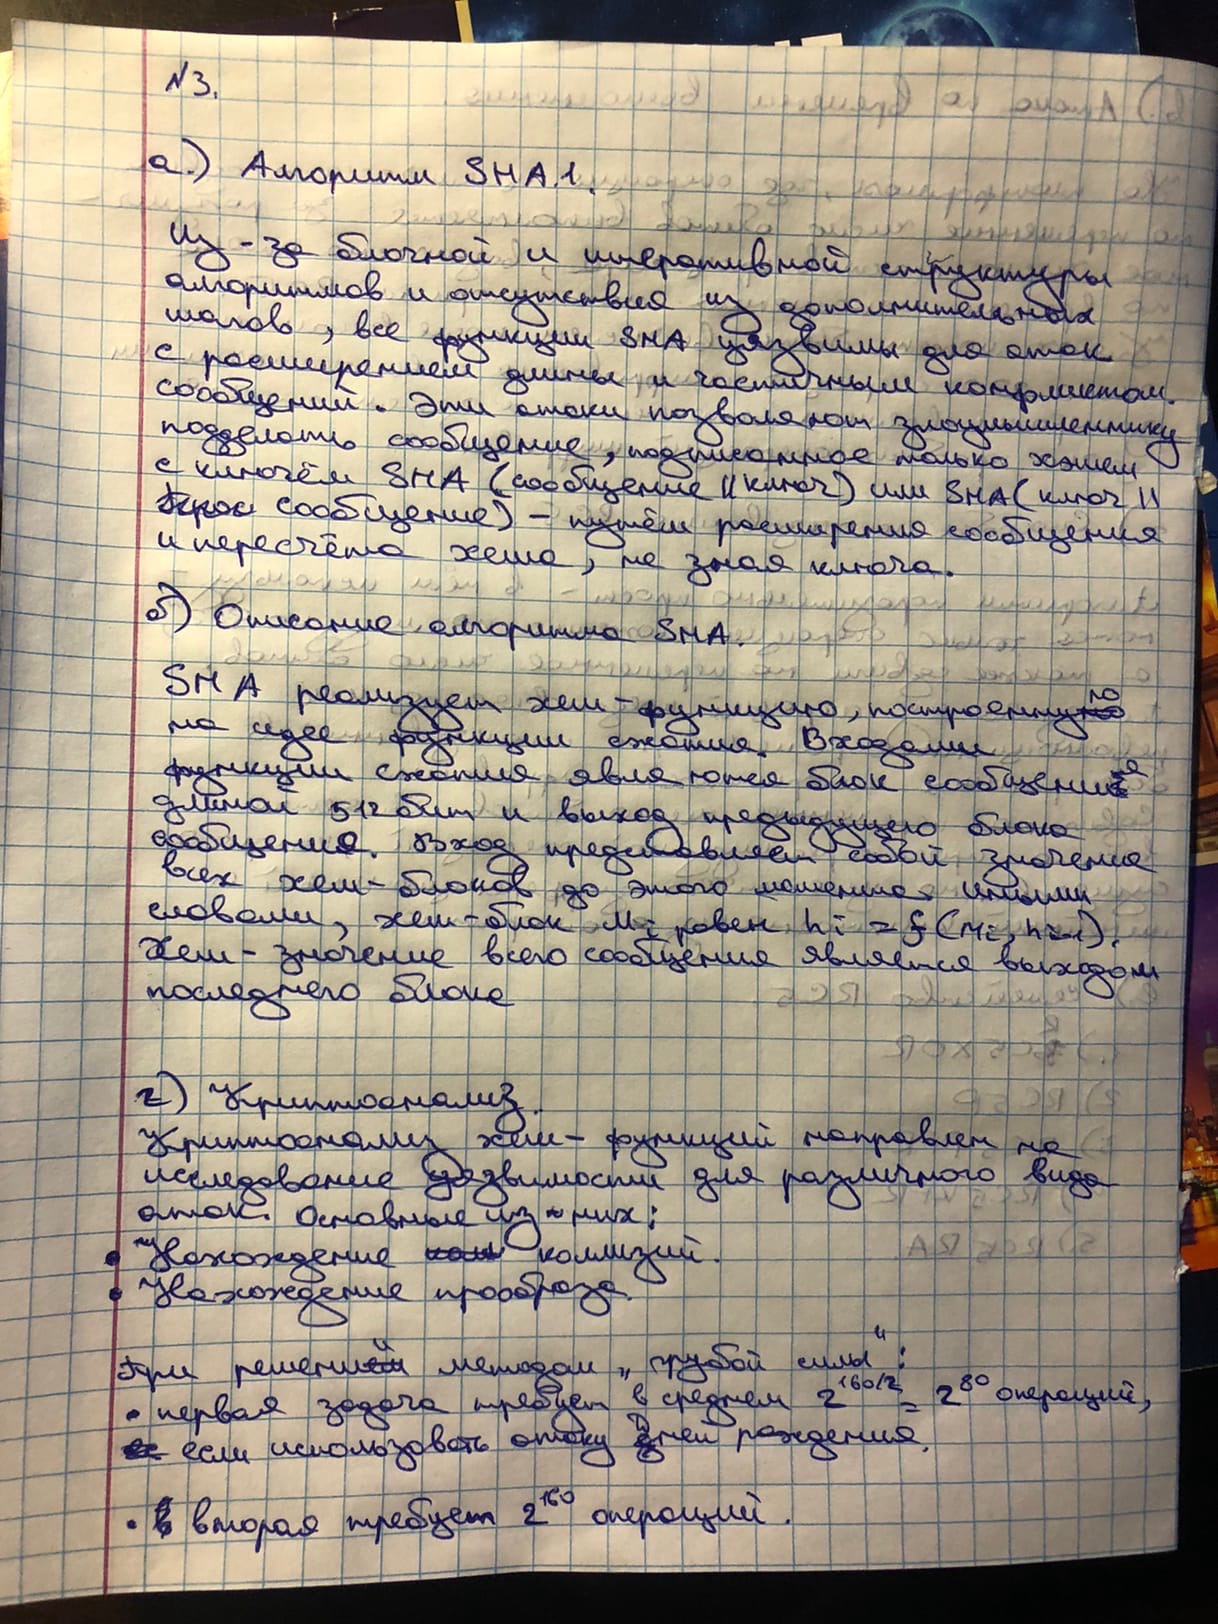 №3.
а.) Алгоритм SHA.1.
Из-за блочной и итеративной структуры
алгоритмов и отсутствия из дополнительных
шагов, все функции SHA уязвимы для атак
с расширением длины и частичным конфликтом
сообщений. Эти атаки позволяют злоумышленнику
подделать сообщение, подписанное только хэшем
с ключём SHA (сообщение || ключ) или SHA (ключ ||
сообщение) – путём расширения сообщения
и пересчёта хеша, не зная ключа.
б) Описание алгоритма SHA.
SHA реализует хеш-функцию, построенную
на идее функции сжатия. Входами
функции сжатия являются блок сообщения
длиной 512 бит и выход предыдущего блока
сообщения. Вход представляет собой значение
всех хеш-блоков до этого момента. Иными
словами, хеш-блок Mi равен hi = f(Mi, hi-1).
Хеш-значение всего сообщения является выходом
последнего блока
г) Криптоанализ.
Криптоанализ хеш-функций направлен на
исследование уязвимости для различного вида
атак. Основные из них:
• Нахождение коллизий.
• Нахождение прообраза.
При решении методом „грубой силы“:
• первая задача требует в среднем 2^160/2 = 2^80 операций,
если использовать атаку Дней рождения.
• вторая требует 2^160 операций.